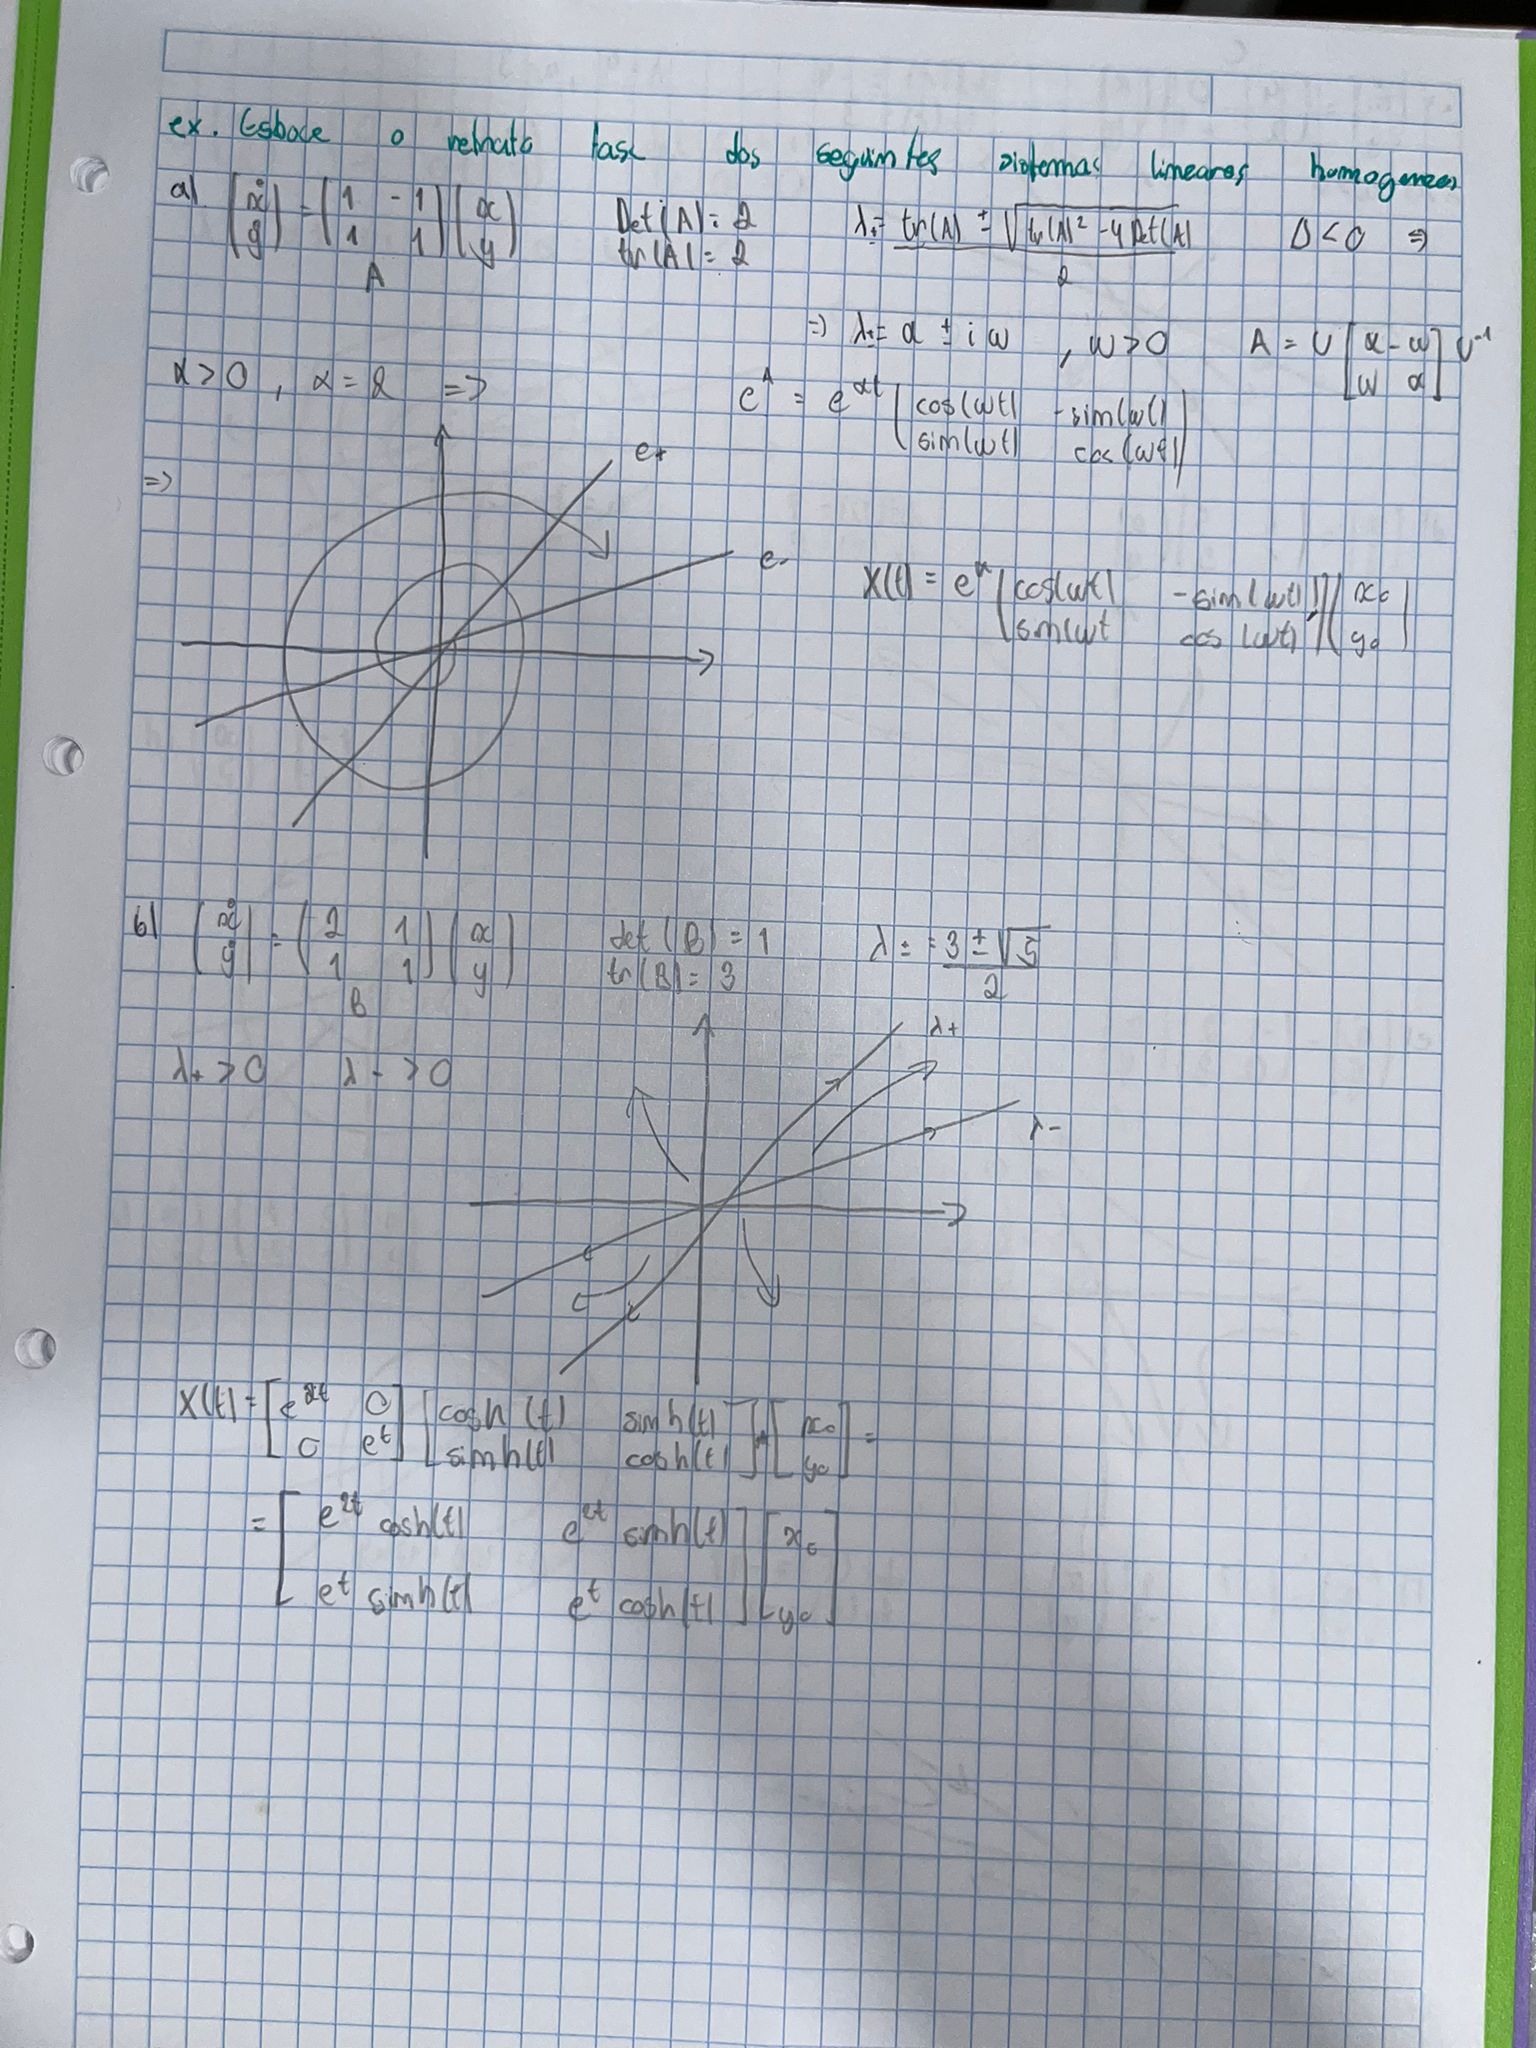 ex. Esboce o retrato fase dos seguintes sistemas lineares homogeneos
a) (ẋ ẏ) = (1 -1 1 1)(x y) Det(A) = 2 tr(A) = 2 λ± = (tr(A) ± √(tr(A)² - 4 Det(A)))/2 Δ < 0 ⇒
A
⇒ λ± = α ± iω , ω > 0 A = U [α -ω ω α] U⁻¹
α > 0 , α = 2 ⇒ e^A = e^αt (cos(ωt) -sin(ωt) sin(ωt) cos(ωt))
⇒ e+
e-
X(t) = e^α (cos(ωt) -sin(ωt) sin(ωt cos(ωt))(x0 y0)
b) (ẋ ẏ) = (2 1 1 1)(x y) det(B) = 1 tr(B) = 3 λ± = (3 ± √5)/2
B
λ+ > 0 λ- > 0
λ+
λ-
X(t) = [e^2t 0 0 e^t] [cosh(t) sinh(t) sinh(t) cosh(t)] [x0 y0] =
= [e^2t cosh(t) e^2t sinh(t) e^t sinh(t) e^t cosh(t)] [x0 y0]